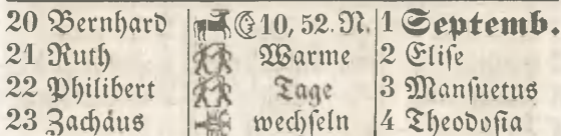 20 Bernhard 10, 52. N. 1 Septemb.
21 Ruth Warme 2 Eliſe
22 Philibert Tage 3 Manſuetus
23 Zachäus wechſeln 4 Theodoſia